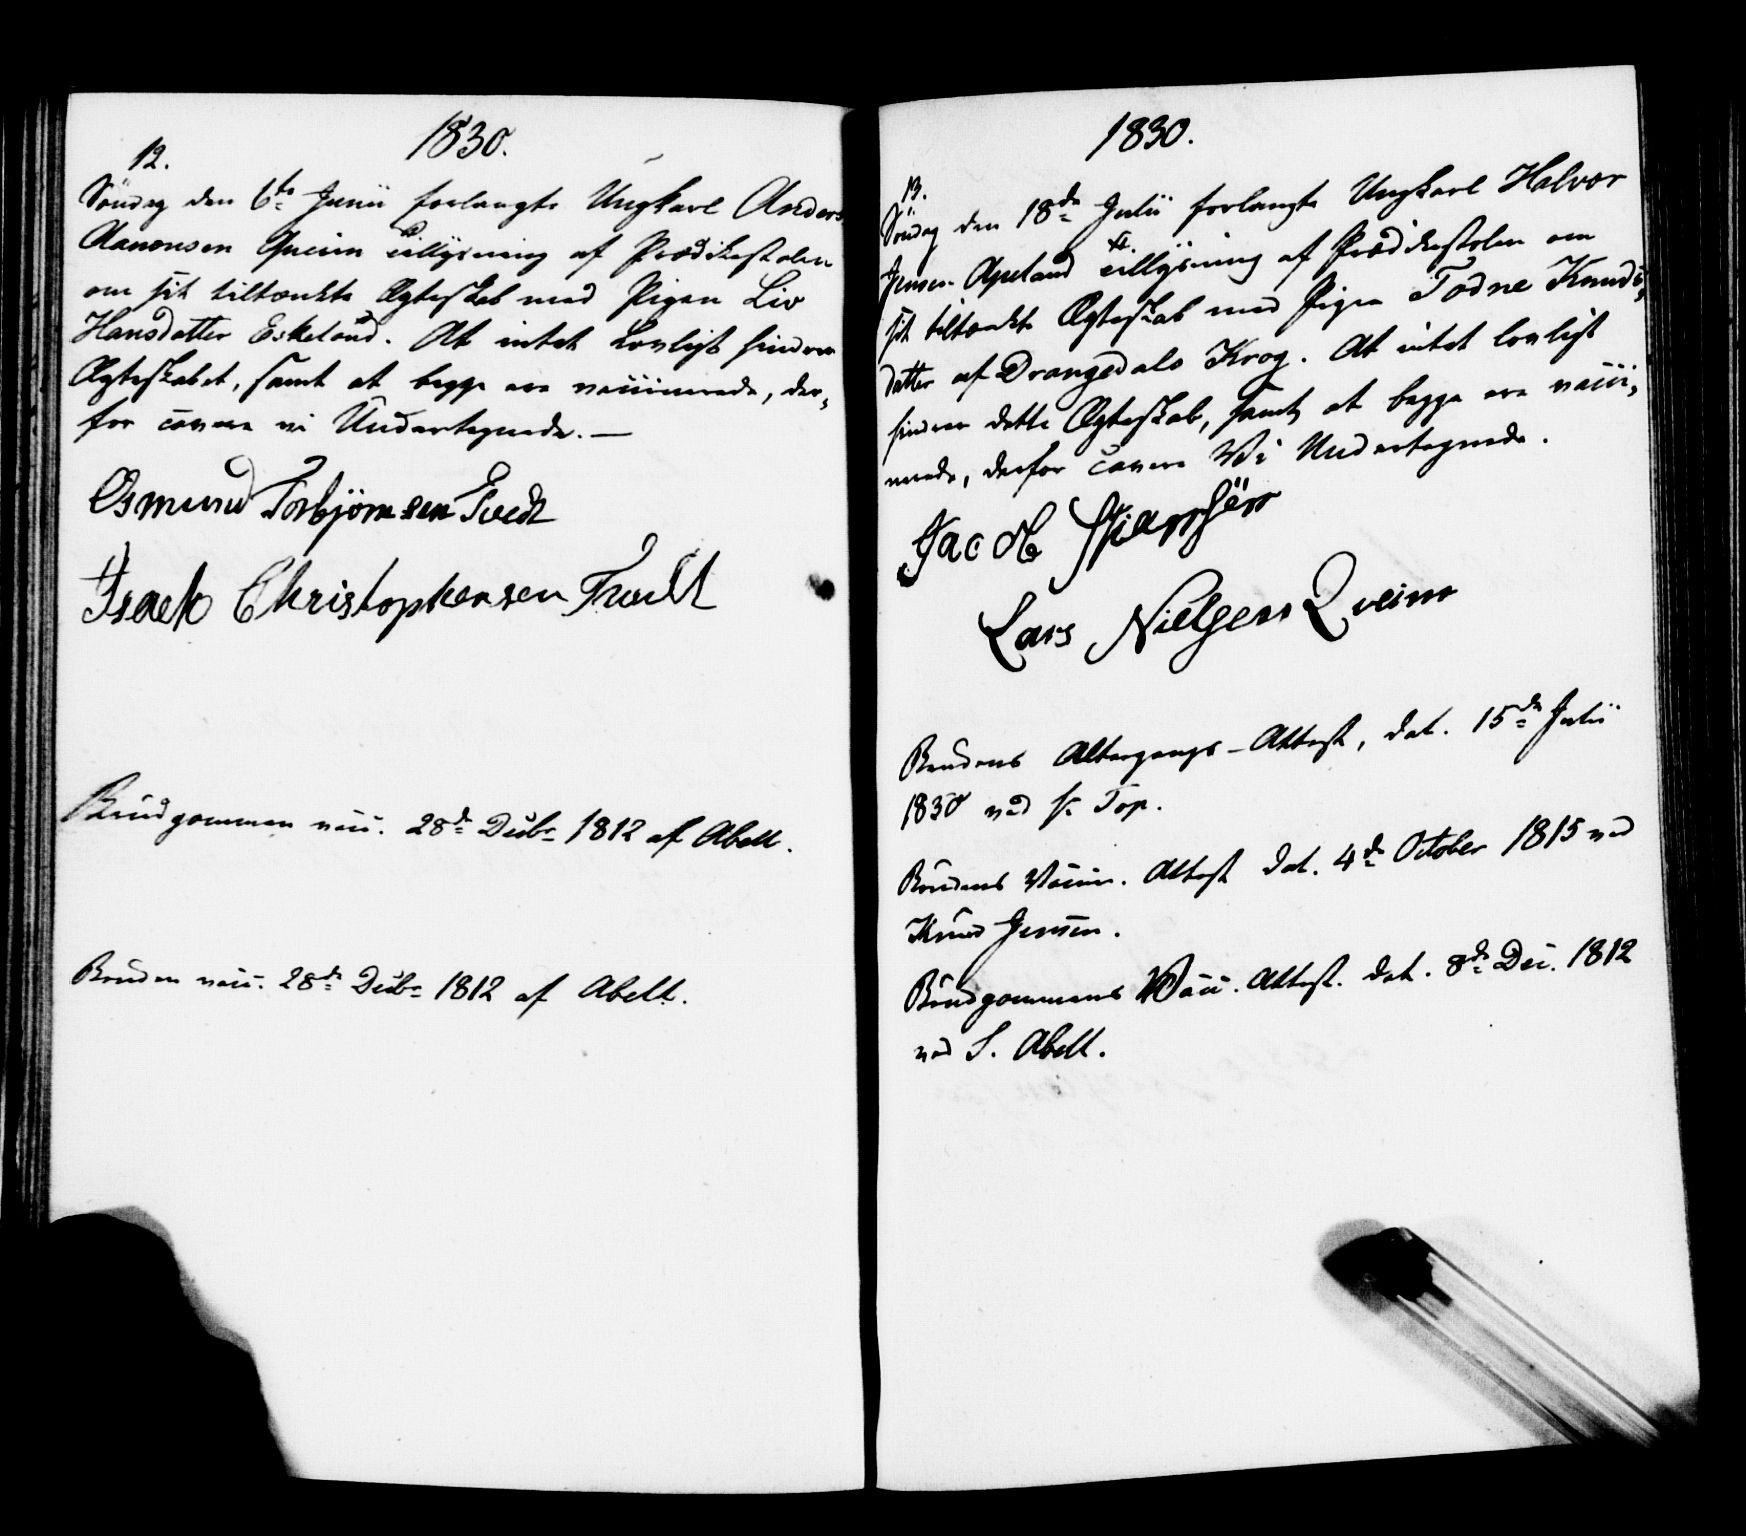 1830.
12.
Söndag den 6te Junii forlangte Ungkarl Anders
Aanonsen Qveim tillysning af Prædikestolen
om sit tiltænkte Ægteskab med Pigen Liv
Hansdatter Eskeland. At intet Lovligt hindrer
Ægteskabet, samt at begge ere vaccinerede, der-
for cavere vi Undertegnede. —
Osmund Torbjörnsen Tvedt
Isack Christophersen Tvedt
Brudgommen vacc. 28de Decbr 1812 af Abell.
Bruden vacc. 28de Decbr 1812 af Abell.
1830.
13.
Söndag den 18de Julii forlangte Ungkarl Halvor
Jensen Apeland tillysning af Prædikestolen om
sit tiltænkte Ægteskab med Pigen Todne Knuds-
datter af Drangedals Krog. At intet lovligt
hindrer dette Ægteskab, samt at begge ere vacci-
nerede, derfor cavere Vi Undertegnede.
Jacob
Lars Nielsen Qveim
Brudens Altergangs-Attest, dat. 15de Julii
1830 ved Hr. Top.
Brudens Vaccin. Attest dat. 4de October 1815 ved
Knud Jensen.
Brudgommens Vacc. Attest. dat. 8de Dec. 1812
ved S. Abell.